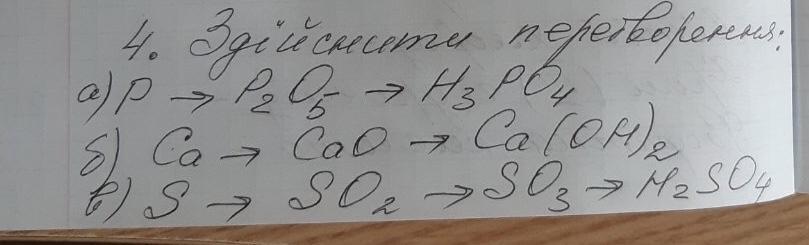 4. Здійснити перетворення:
а) P → P₂O₅ → H₃PO₄
б) Ca → CaO → Ca(OH)₂
в) S → SO₂ → SO₃ → H₂SO₄